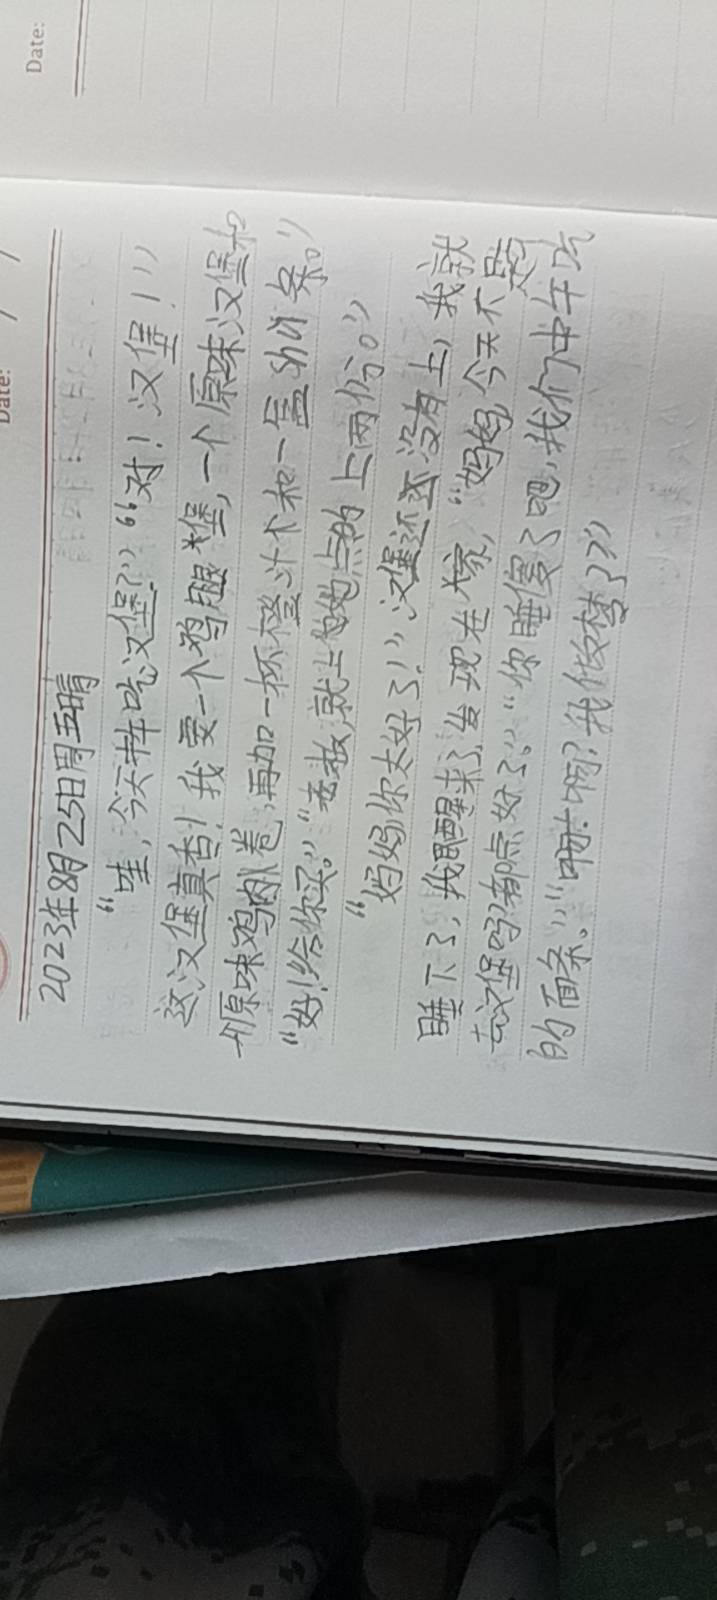 Date: / /
Date:
2023年8月25日周五晴
“哇,今天非吃汉堡?”“对!汉堡!”
这汉堡真香!我要一个鸡腿堡,一个原味汉堡和
原味鸡肉卷,再加一杯橙汁和一盒条。”
“好!给你买。”“老板,就上她点的上两份。”
“妈妈你太好了!”汉堡还没有上,我就
睡下了,我醒来了发现在家,“妈妈,今天不是
去汉堡吗?都点好了。”“你睡傻了吧,我们中午吃
的面条。”“啊?我做梦了?”